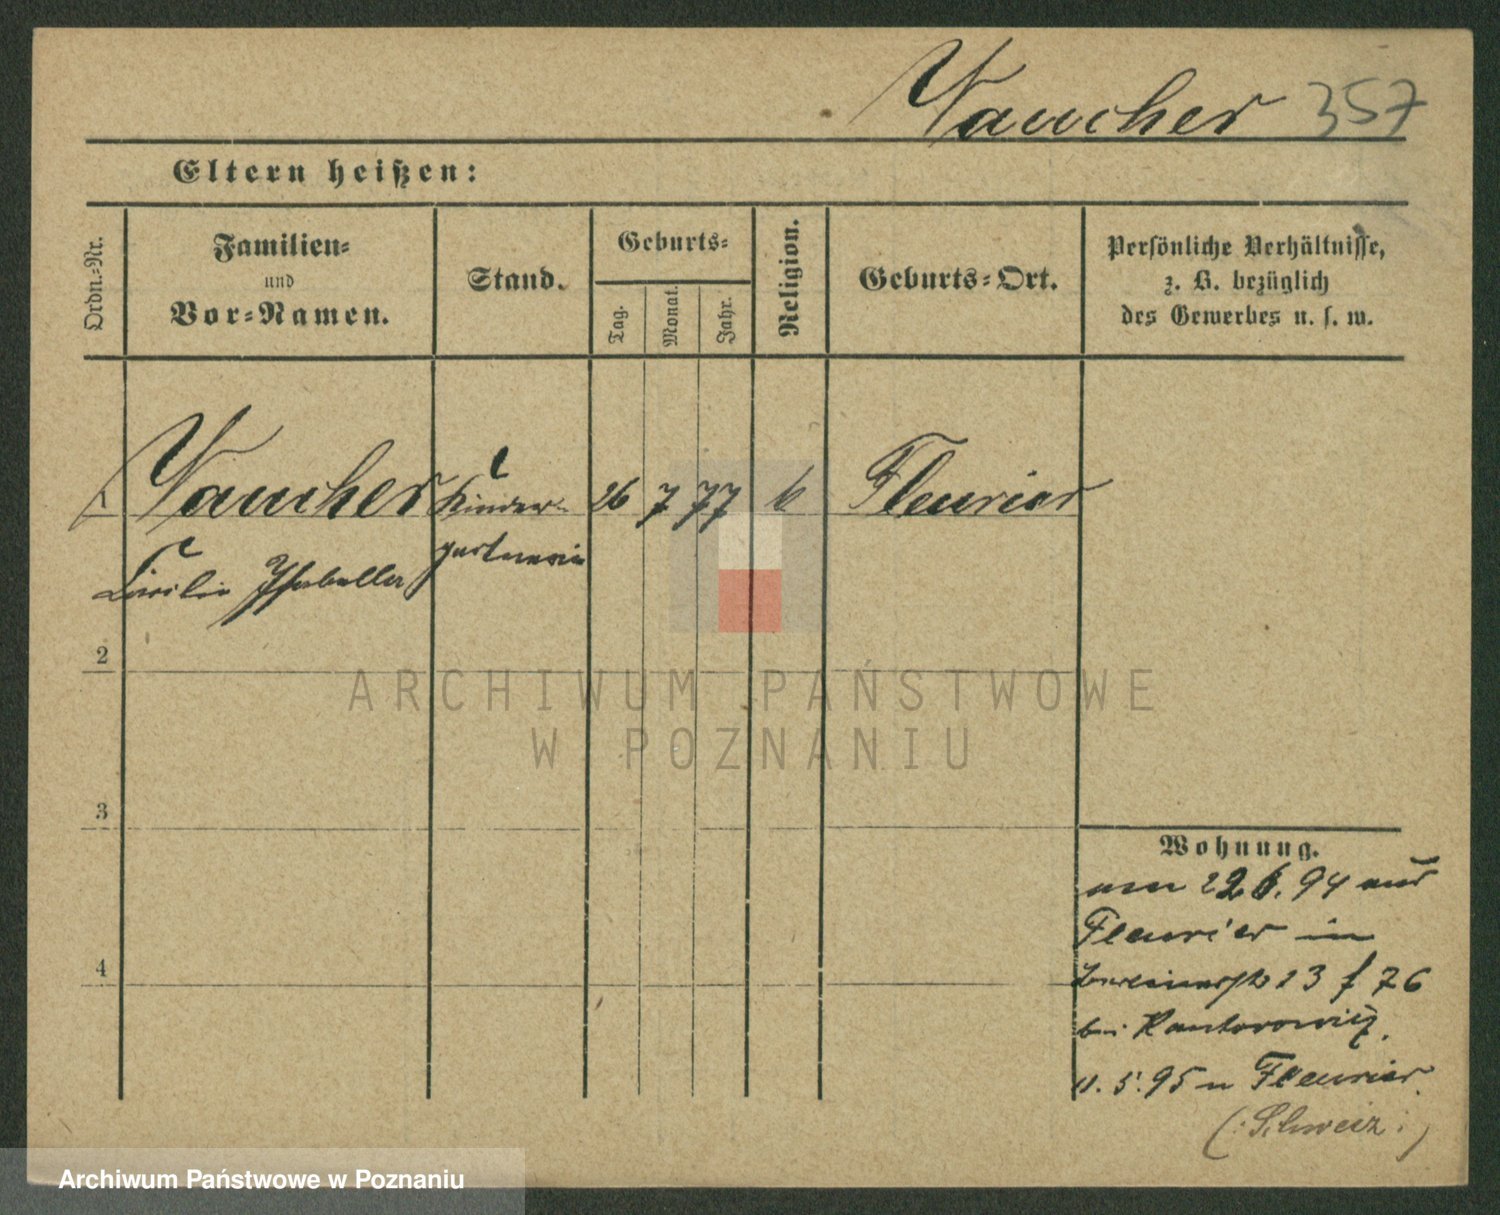 Vaucher 357
Eltern heißen:
Ordn.-Nr.
Familien-
und
Vor-Namen.
Stand.
Geburts-
Tag.
Monat.
Jahr.
Religion.
Geburts-Ort.
Persönliche Verhältnisse,
z. B. bezüglich
des Gewerbes u. s. w.
1 Vaucher Kinder- 26 7 77 k Fleurier
Cäcilie Isabella gärtnerin
2
3
4
Wohnung.
am 22 6. 94 aus
Fleurier in
13 f 76
bei Kantorowicz.
11. 5. 95 n Fleurier.
(: Schweiz :)
ARCHIWUM PAŃSTWOWE
W POZNANIU
Archiwum Państwowe w Poznaniu